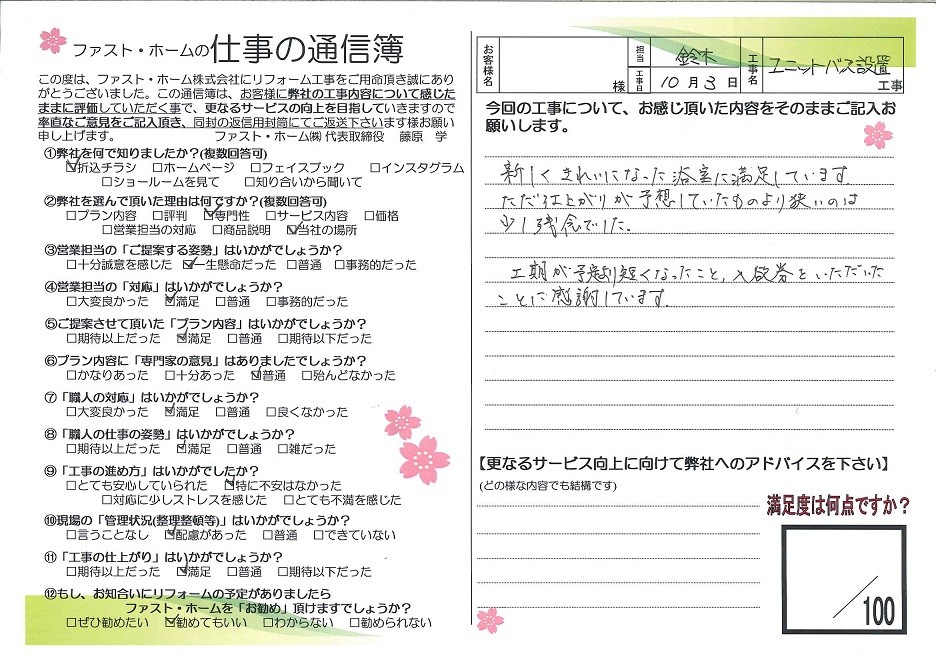 ファスト・ホームの仕事の通信簿
この度は、ファスト・ホーム株式会社にリフォーム工事をご用命頂き誠にあり
がとうございました。この通信簿は、お客様に弊社の工事内容について感じた
ままに評価していただく事で、更なるサービスの向上を目指していきますので
率直なご意見をご記入頂き、同封の返信用封筒にてご返送下さいます様お願い
申し上げます。 ファスト・ホーム㈱ 代表取締役 藤原 学
①弊社を何で知りましたか?(複数回答可)
☑折込チラシ □ホームページ □フェイスブック □インスタグラム
□ショールームを見て □知り合いから聞いて
②弊社を選んで頂いた理由は何ですか?(複数回答可)
□プラン内容 □評判 ☑専門性 □サービス内容 □価格
□営業担当の対応 □商品説明 ☑当社の場所
③営業担当の「ご提案する姿勢」はいかがでしょうか?
□十分誠意を感じた ☑一生懸命だった □普通 □事務的だった
④営業担当の「対応」はいかがでしょうか?
□大変良かった ☑満足 □普通 □事務的だった
⑤ご提案させて頂いた「プラン内容」はいかがでしょうか?
□期待以上だった ☑満足 □普通 □期待以下だった
⑥プラン内容に「専門家の意見」はありましたでしょうか?
□かなりあった □十分あった ☑普通 □殆んどなかった
⑦「職人の対応」はいかがでしょうか?
□大変良かった ☑満足 □普通 □良くなかった
⑧「職人の仕事の姿勢」はいかがでしょうか?
□期待以上だった ☑満足 □普通 □雑だった
⑨「工事の進め方」はいかがでしたか?
□とても安心していられた ☑特に不安はなかった
□対応に少しストレスを感じた □とても不満を感じた
⑩現場の「管理状況(整理整頓等)」はいかがでしょうか?
□言うことなし ☑配慮があった □普通 □できていない
⑪「工事の仕上がり」はいかがでしょうか?
□期待以上だった ☑満足 □普通 □期待以下だった
⑫もし、お知合いにリフォームの予定がありましたら
ファスト・ホームを「お勧め」頂けますでしょうか?
□ぜひ勧めたい ☑勧めてもいい □わからない □勧められない
お客様名 様 担当 鈴木 工事日 10月3日 工事名 ユニットバス設置 工事
今回の工事について、お感じ頂いた内容をそのままご記入お
願いします。
新しくきれいになった浴室に満足しています。
ただ仕上がりが予想していたものより狭いのは
少し残念でした。
工期が予定より短くなったこと、入浴券をいただいた
ことに感謝しています。
【更なるサービス向上に向けて弊社へのアドバイスを下さい】
(どの様な内容でも結構です)
満足度は何点ですか?
/100